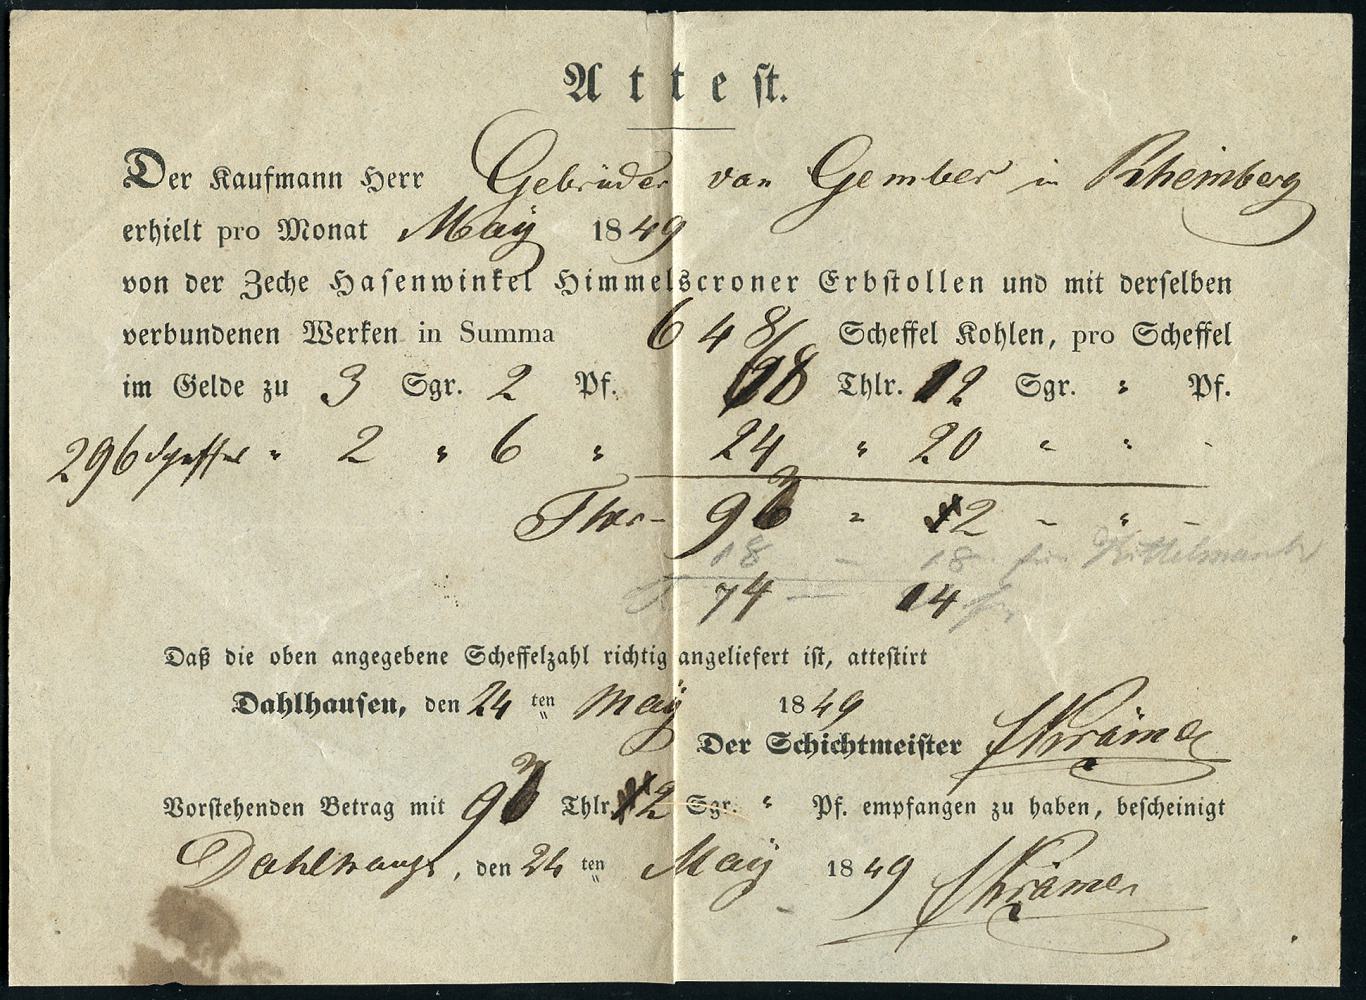 Attest.
Der Kaufmann Herr Gebrüder van Gember in Rheinberg
erhielt pro Monat Maÿ 1849
von der Zeche Hasenwinkel Himmelscroner Erbstollen und mit derselben
verbundenen Werken in Summa 648 Scheffel Kohlen, pro Scheffel
im Gelde zu 3 Sgr. 2 Pf. 68 Thlr. 12 Sgr. " Pf.
296 Scheffel " 2 " 6 " 24 " 20 " " -
Thlr - 93 " 2 - " -
18 - 18 für Mittelmark
74 - 14
Daß die oben angegebene Scheffelzahl richtig angeliefert ist, attestirt
Dahlhausen, den 24 ten Maÿ 1849
Der Schichtmeister Krämer
Vorstehenden Betrag mit 93 Thlr. 2 Sgr. " Pf. empfangen zu haben, bescheinigt
Dahlhausen, den 24 ten Maÿ 1849 Krämer